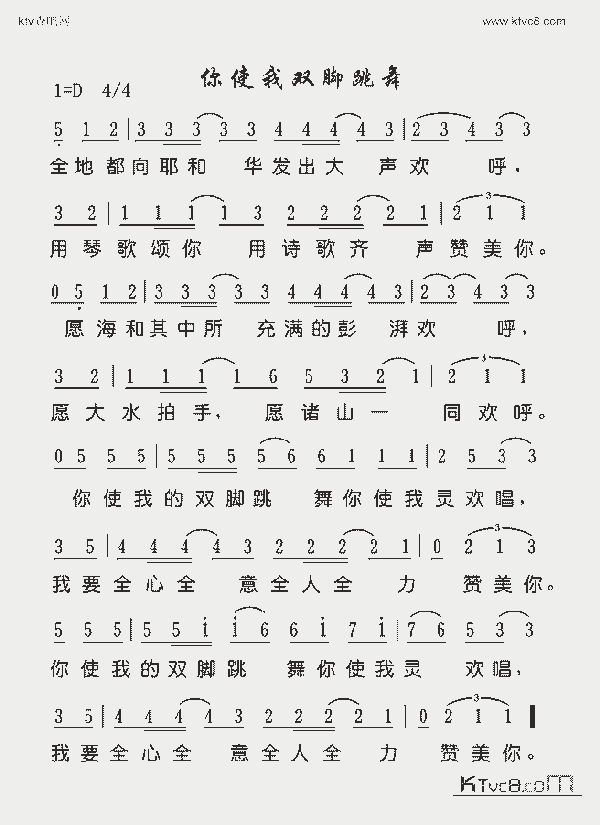 ktv简谱网 www.ktvc8.com
你使我双脚跳舞
1=D 4/4
5 1 2 | 3 3 3 3 3 4 4 4 4 3 | 2 3 4 3 3
全地都向耶和 华发出大 声欢 呼,
3 2 | 1 1 1 1 3 2 2 2 2 1 | 2 1 1
用琴歌颂你 用诗歌齐 声赞美你。
0 5 1 2 | 3 3 3 3 3 4 4 4 4 3 | 2 3 4 3 3
愿海和其中所 充满的彭 湃欢 呼,
3 2 | 1 1 1 1 6 5 3 2 1 | 2 1 1
愿大水拍手, 愿诸山一 同欢呼。
0 5 5 5 | 5 5 5 5 6 6 1 1 1 | 2 5 3 3
你使我的双脚跳 舞你使我灵欢唱,
3 5 | 4 4 4 4 3 2 2 2 2 1 | 0 2 1 3
我要全心全 意全人全 力 赞美你。
5 5 5 | 5 5 1 1 6 6 1 7 1 | 7 6 5 3 3
你使我的双脚跳 舞你使我灵 欢唱,
3 5 | 4 4 4 4 3 2 2 2 2 1 | 0 2 1 1
我要全心全 意全人全 力 赞美你。
KTvc8.com